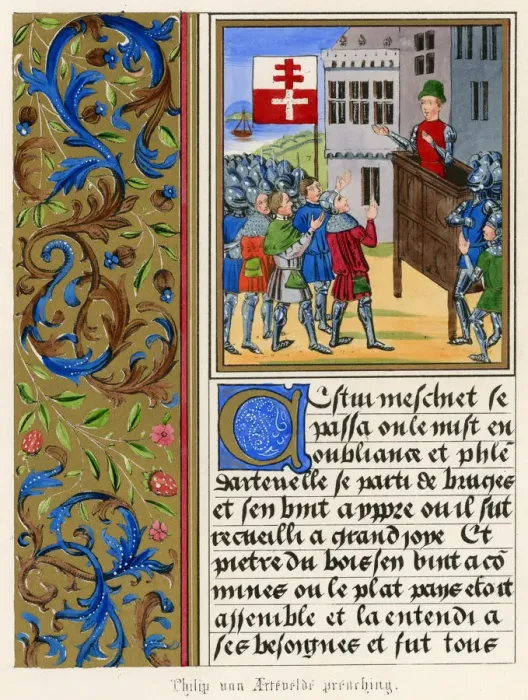 Cestui meschiet se
passa on le mist en
oubliance et phlē
dartevelle se parti de bruges
et sen vint a yppre ou il fut
recueilli a grand joye Et
pietre du bois sen vint a cō
mines ou le plat pays estoit
assemble et la entendi a
ses besoignes et fut tous
Philip van Artevelde preaching.